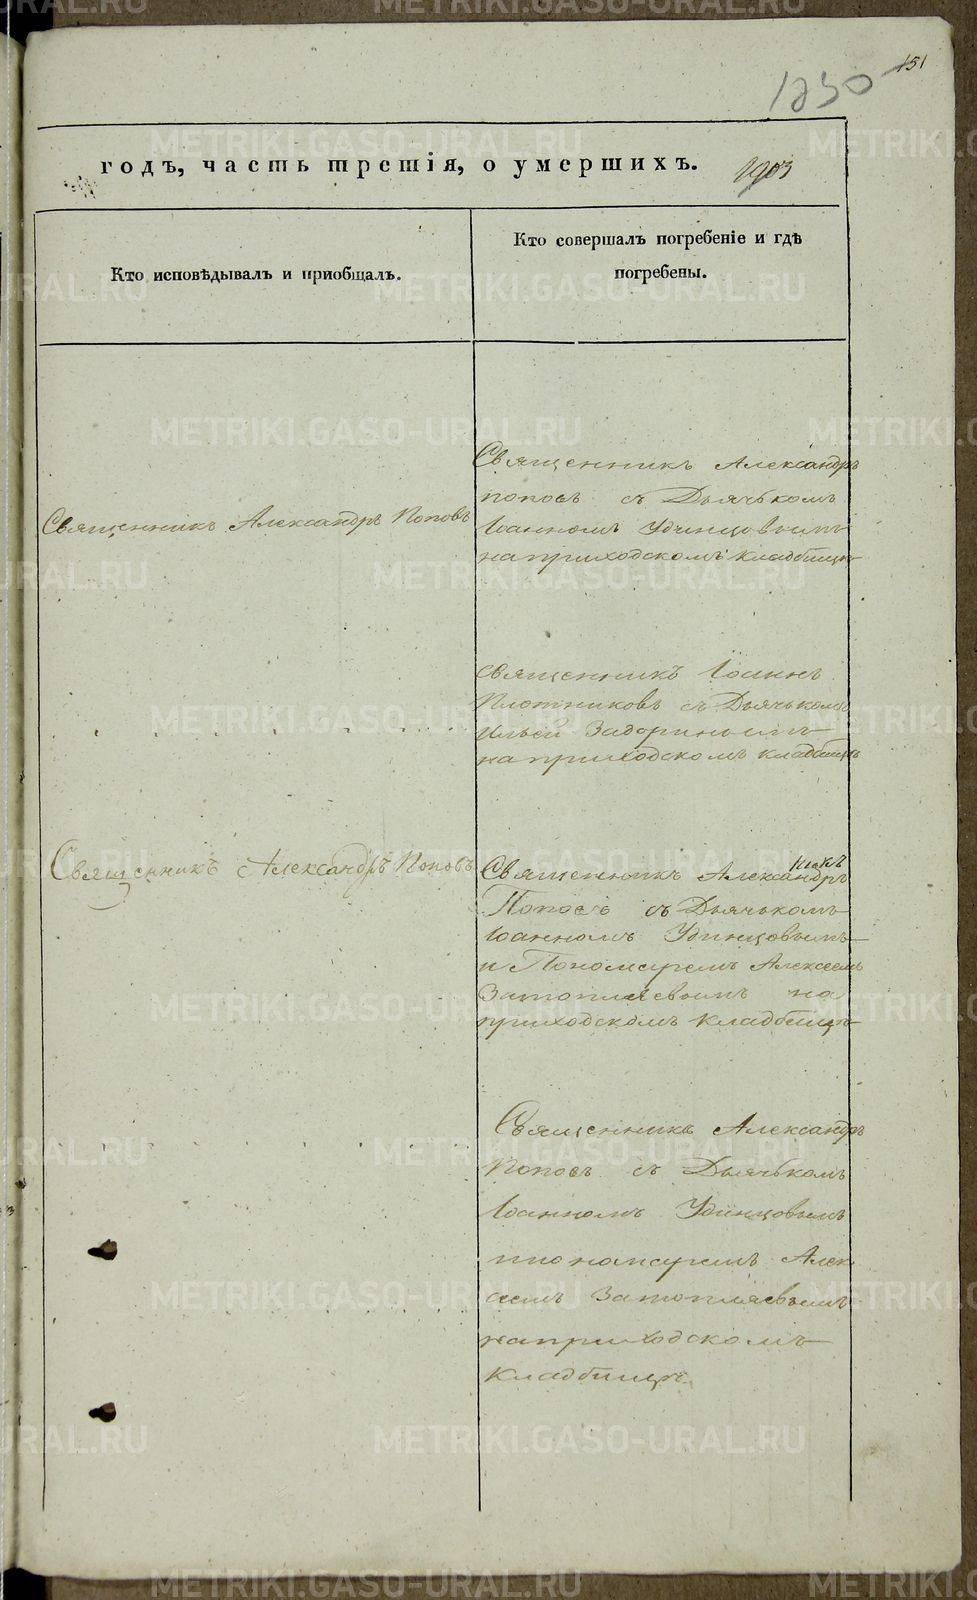 151
1230
годъ, часть третія, о умершихъ.
1903
Кто исповѣдывалъ и пріобщалъ.
Кто совершалъ погребеніе и гдѣ
погребены.
Священникъ Александръ Поповъ
Священникъ Александръ
поповъ съ Дьячькомъ
Іоанномъ Удинцовымъ
на приходскомъ кладбищѣ
священникъ Іоаннъ
Плотниковъ съ Дьячькомъ
Ильей Задоринымъ
на приходскомъ кладбищѣ
Священникъ Александръ Поповъ
Священникъ Александръ
Поповъ съ Дьячькомъ
Іоанномъ Удинцовымъ
и Пономаремъ Алексеемъ
Затопляевымъ на
приходскомъ кладбищѣ
Священникъ Александръ
Поповъ съ Дьячькомъ
Іоанномъ Удинцовымъ
и пономаремъ Алек
сеемъ Затопляевымъ
на приходскомъ
кладбищѣ.
METRIKI.GASO-URAL.RU